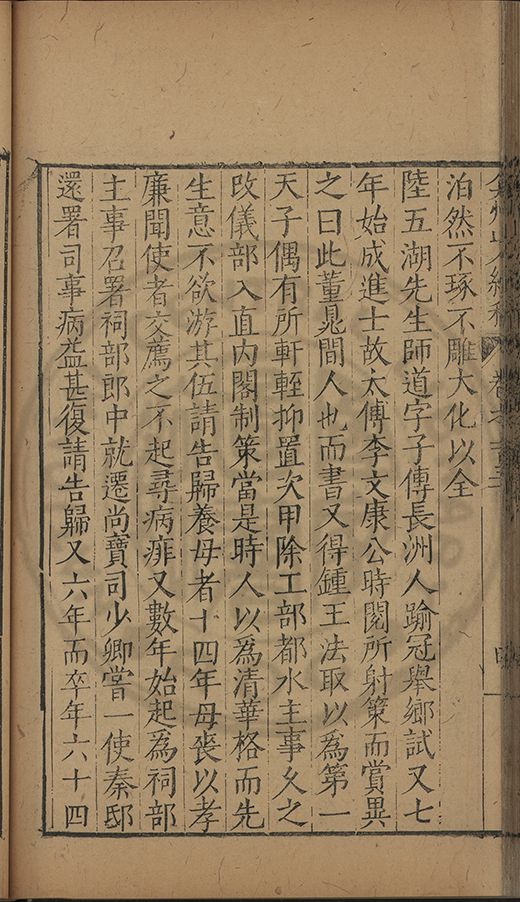 泊然不琢不雕大化以全
陸五湖先生師道字子傳長洲人踰冠舉鄉試又七
年始成進士故太傅李文康公時閱所射策而賞異
之曰此董晁間人也而書又得鍾王法取以爲第一
天子偶有所軒輊抑置次甲除工部都水主事久之
改儀部入直內閣制策當是時人以爲清華格而先
生意不欲游其伍請告歸養母者十四年母喪以孝
廉聞使者交薦之不起尋病痱又數年始起爲祠部
主事召署祠部郎中就遷尚寶司少卿嘗一使秦邸
還署司事病益甚復請告歸又六年而卒年六十四